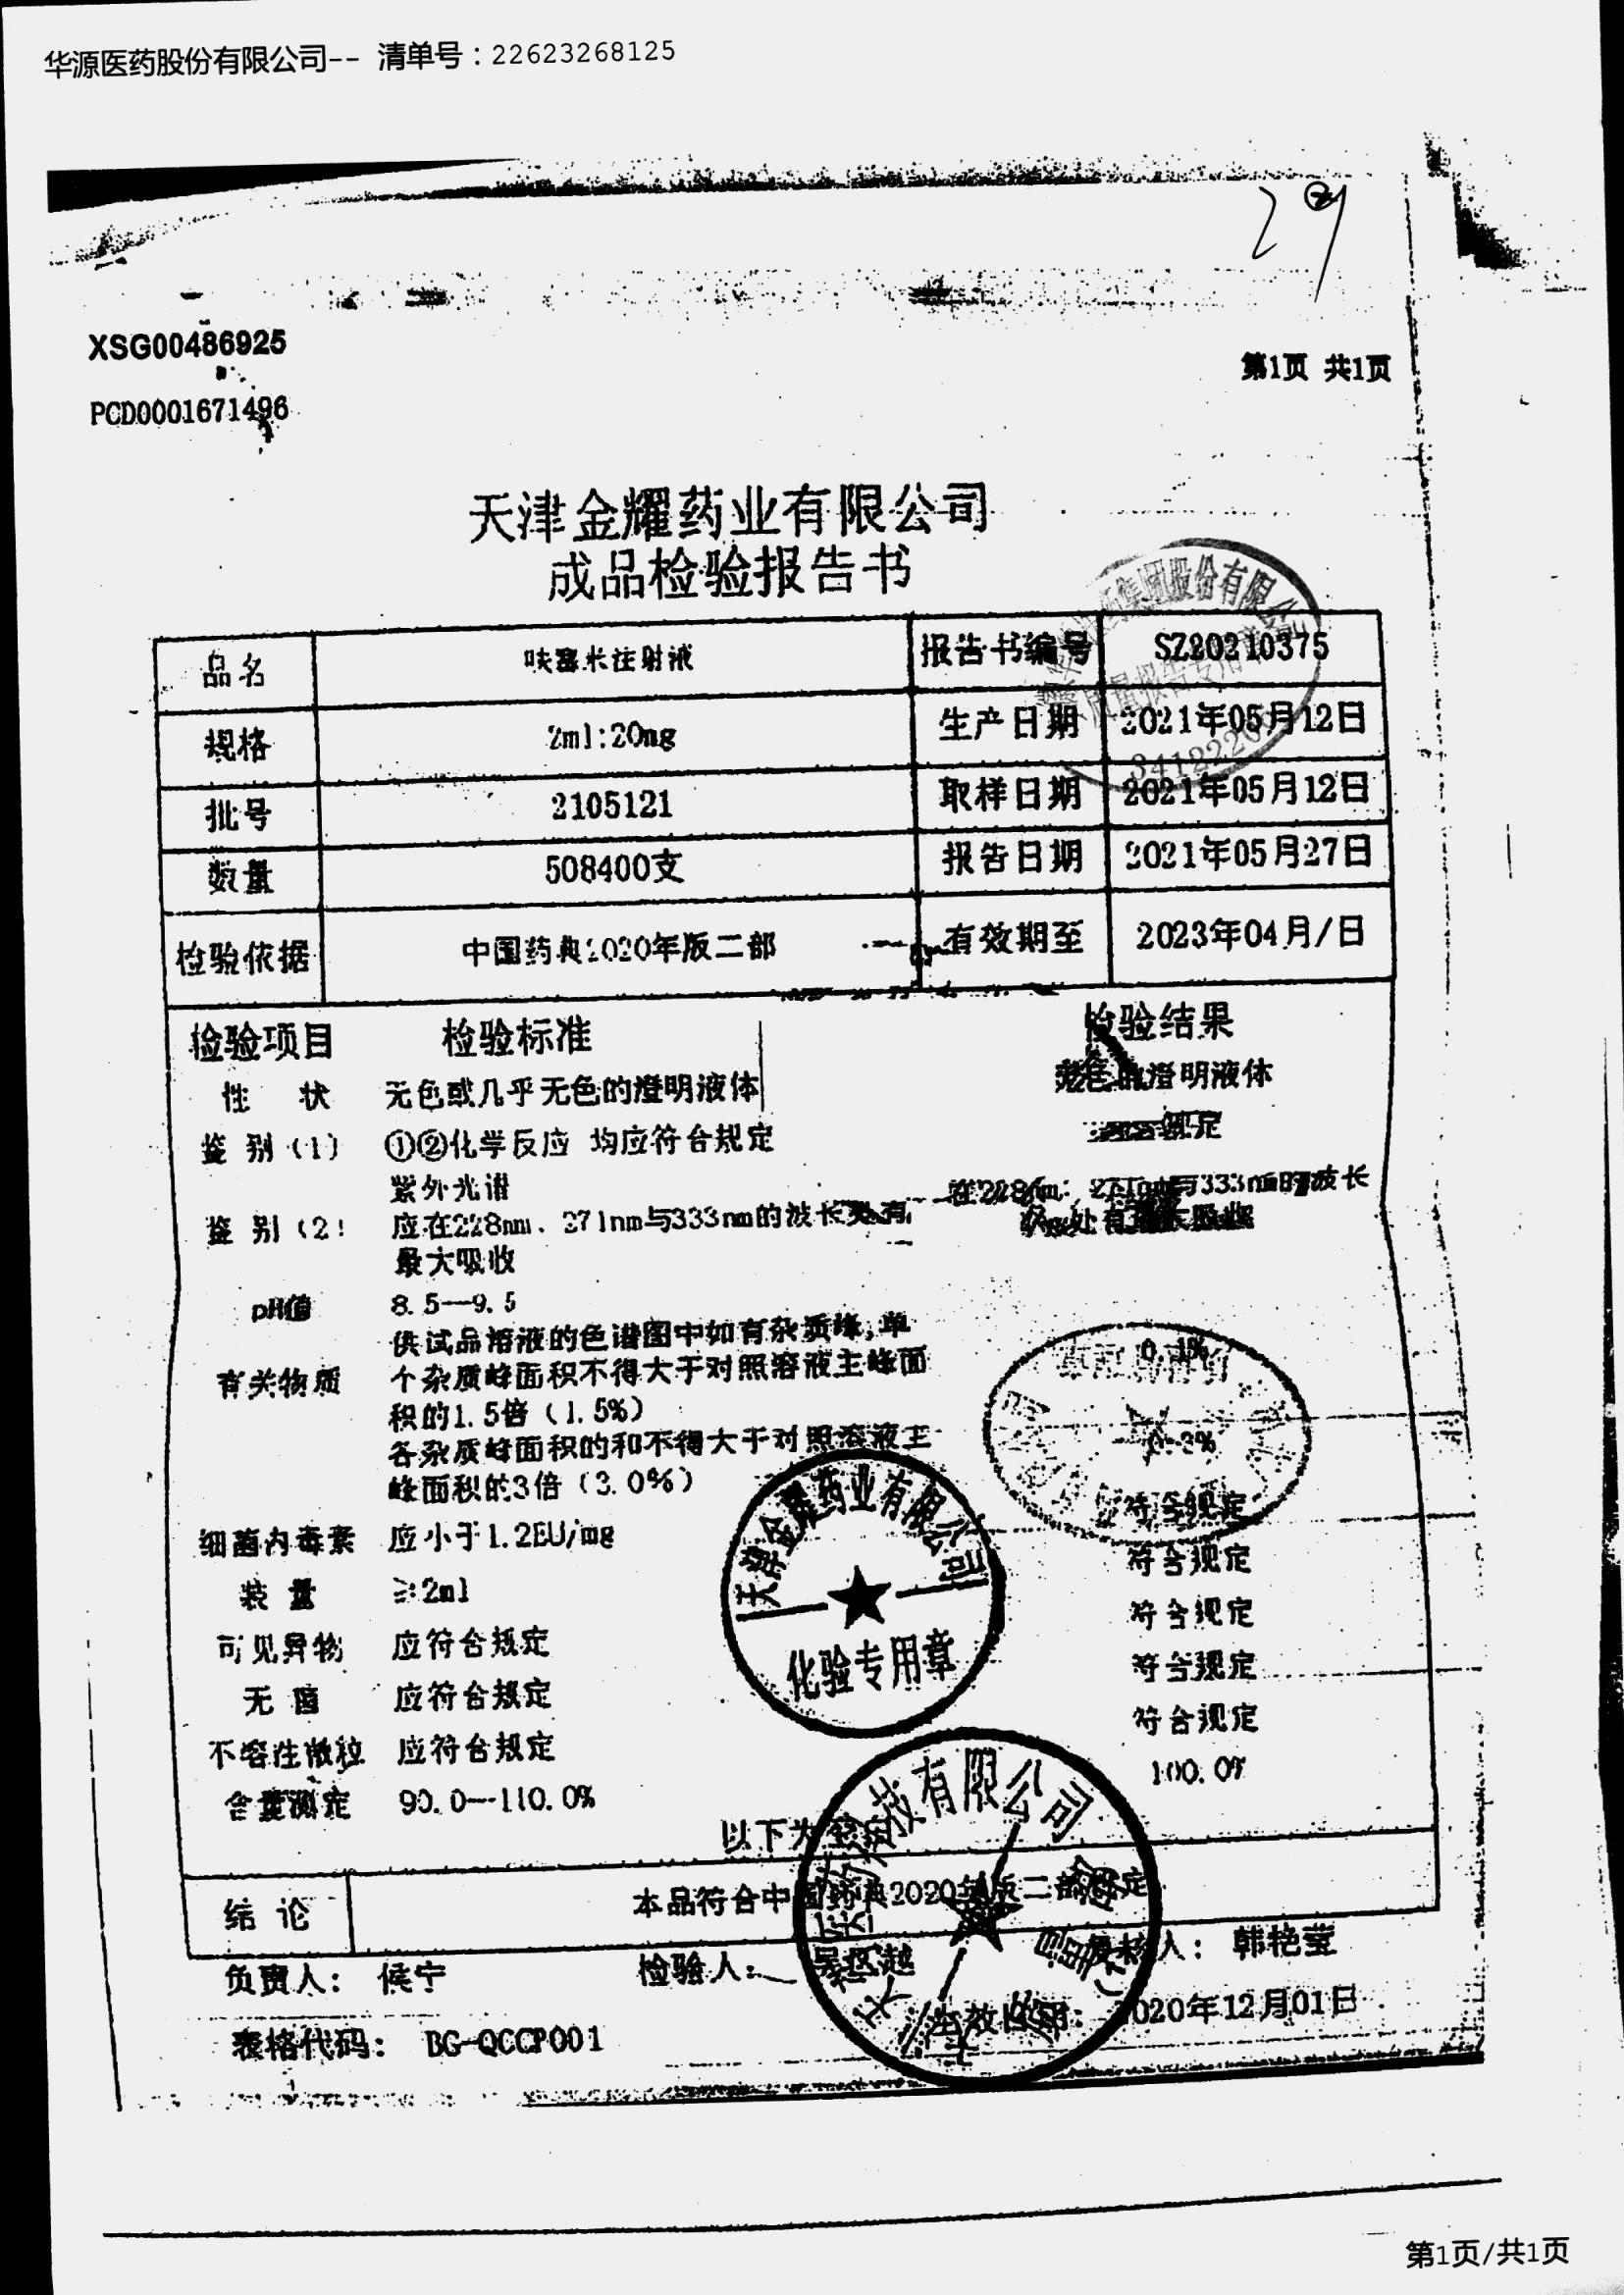 华源医药股份有限公司-- 清单号：22623268125
29
XSG00486925
第1页 共1页
PCD0001671496
天津金耀药业有限公司
成品检验报告书
品名 呋塞米注射液 报告书编号 SZ20210375
规格 2ml:20mg 生产日期 2021年05月12日
批号 2105121 取样日期 2021年05月12日
数量 508400支 报告日期 2021年05月27日
检验依据 中国药典2020年版二部 有效期至 2023年04月/日
检验项目 检验标准 检验结果
性 状 无色或几乎无色的澄明液体 色的澄明液体
鉴 别（1） ①②化学反应 均应符合规定 规定
紫外光谱
鉴 别（2） 应在228nm、271nm与333nm的波长处有 在228nm、271nm与333nm的波长
最大吸收 处有最大吸收
pH值 8.5—9.5
供试品溶液的色谱图中如有杂质峰,单
有关物质 个杂质峰面积不得大于对照溶液主峰面 0.1%
积的1.5倍（1.5%）
各杂质峰面积的和不得大于对照溶液主 0.3%
峰面积的3倍（3.0%）
符合规定
细菌内毒素 应小于1.2EU/mg 符合规定
装 量 ≥2ml 符合规定
可见异物 应符合规定 符合规定
无 菌 应符合规定 符合规定
不溶性微粒 应符合规定
含量测定 90.0—110.0% 100.0%
以下为空白
结 论 本品符合中国药典2020年版二部规定
负责人： 侯宁 检验人： 复核人： 韩艳莹
表格代码： BG-QCCP001 生效日期： 2020年12月01日
天津金耀药业有限公司
化验专用章
集团股份有限
质量报告专用
3412220
技有限公司
第1页/共1页